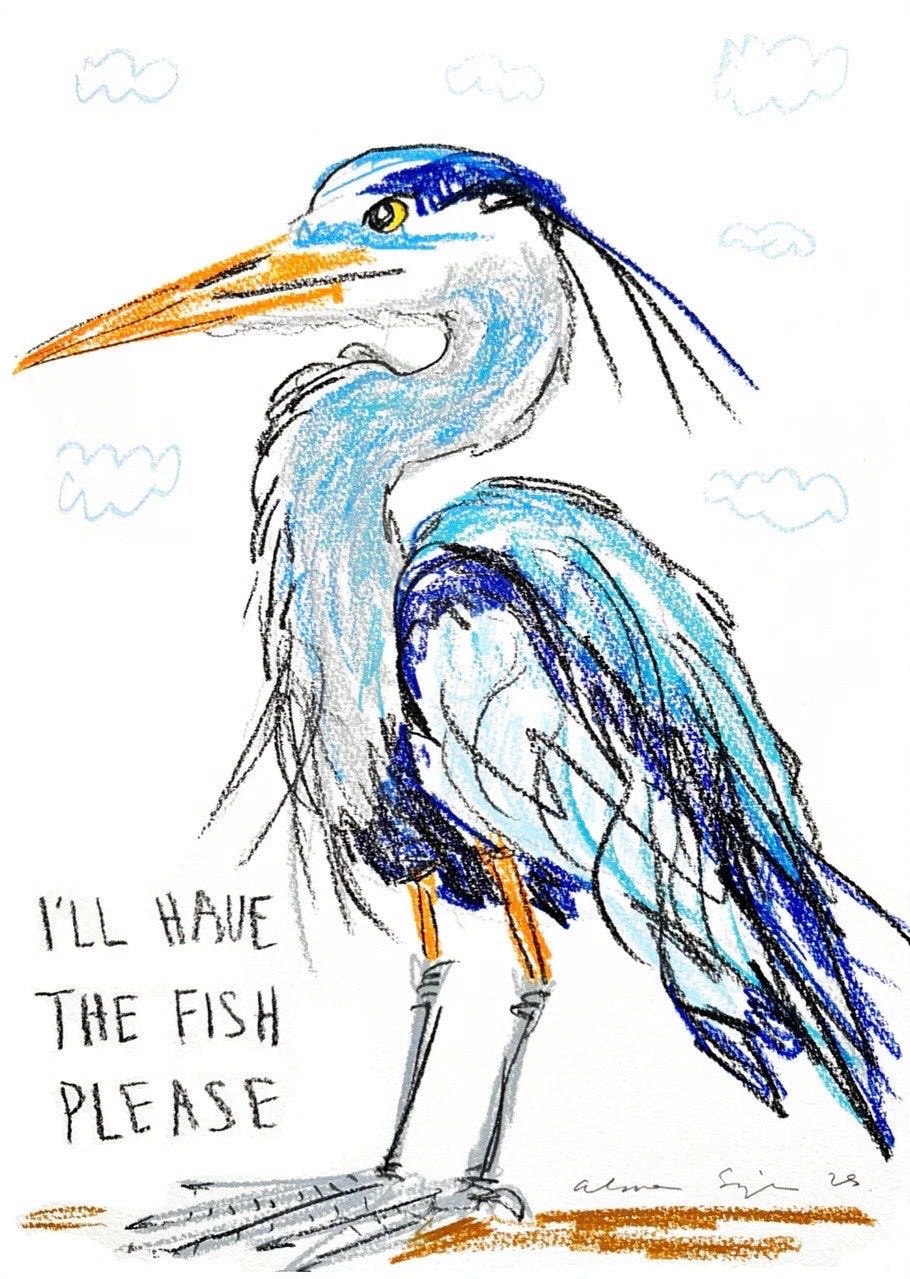 I'LL HAVE
THE FISH
PLEASE